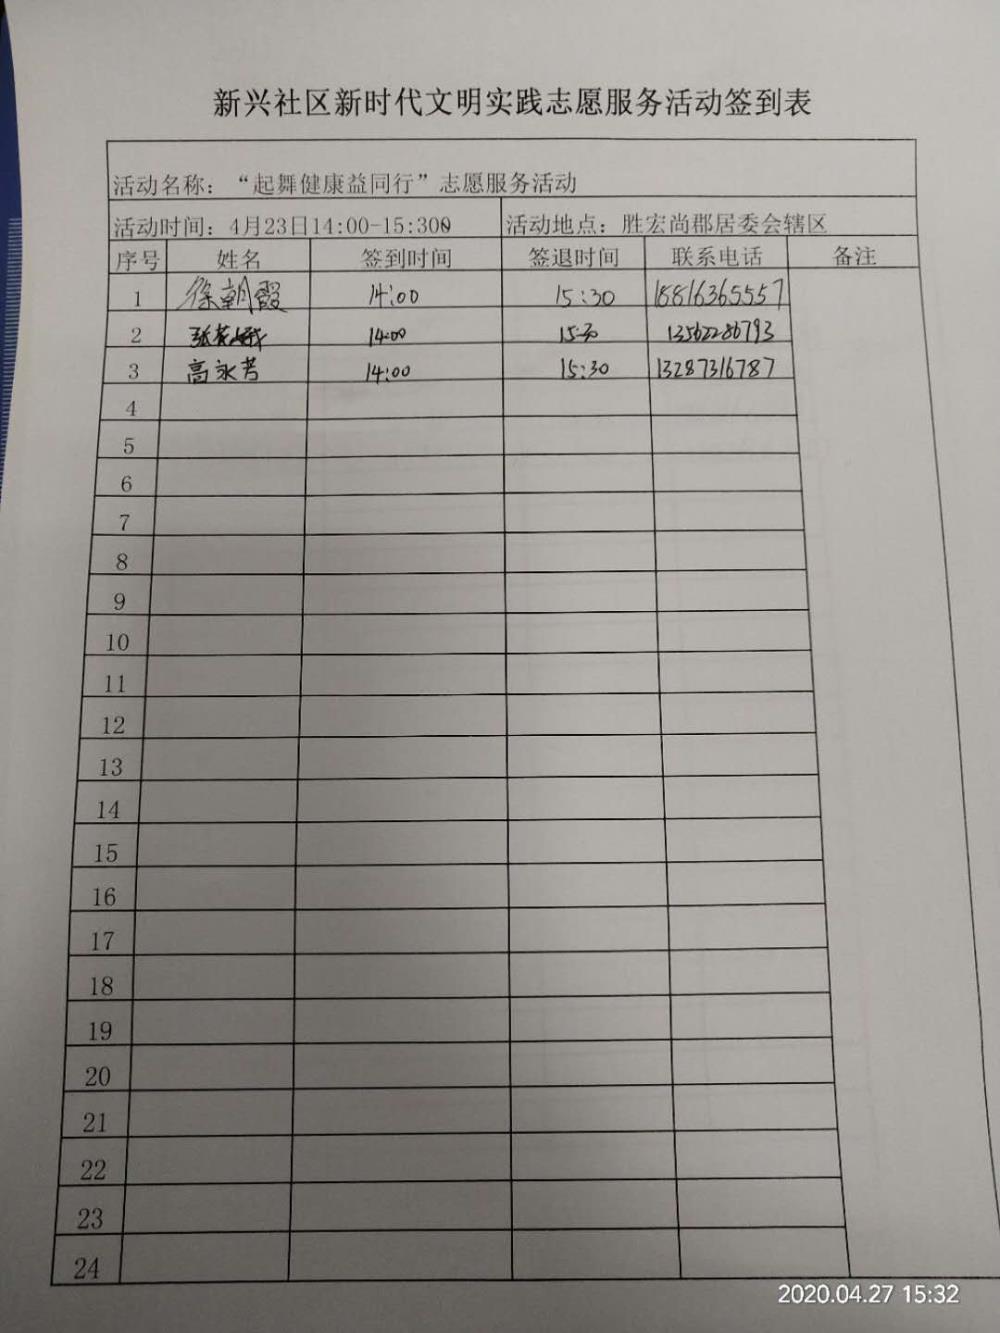 新兴社区新时代文明实践志愿服务活动签到表
活动名称：“起舞健康益同行”志愿服务活动
活动时间：4月23日14:00-15:300 活动地点：胜宏尚郡居委会辖区
序号 姓名 签到时间 签退时间 联系电话 备注
1 徐朝霞 14:00 15:30 15816365557
2 14:00 15:30 13562286793
3 高永芳 14:00 15:30 13287316787
4
5
6
7
8
9
10
11
12
13
14
15
16
17
18
19
20
21
22
23
24
2020.04.27 15:32